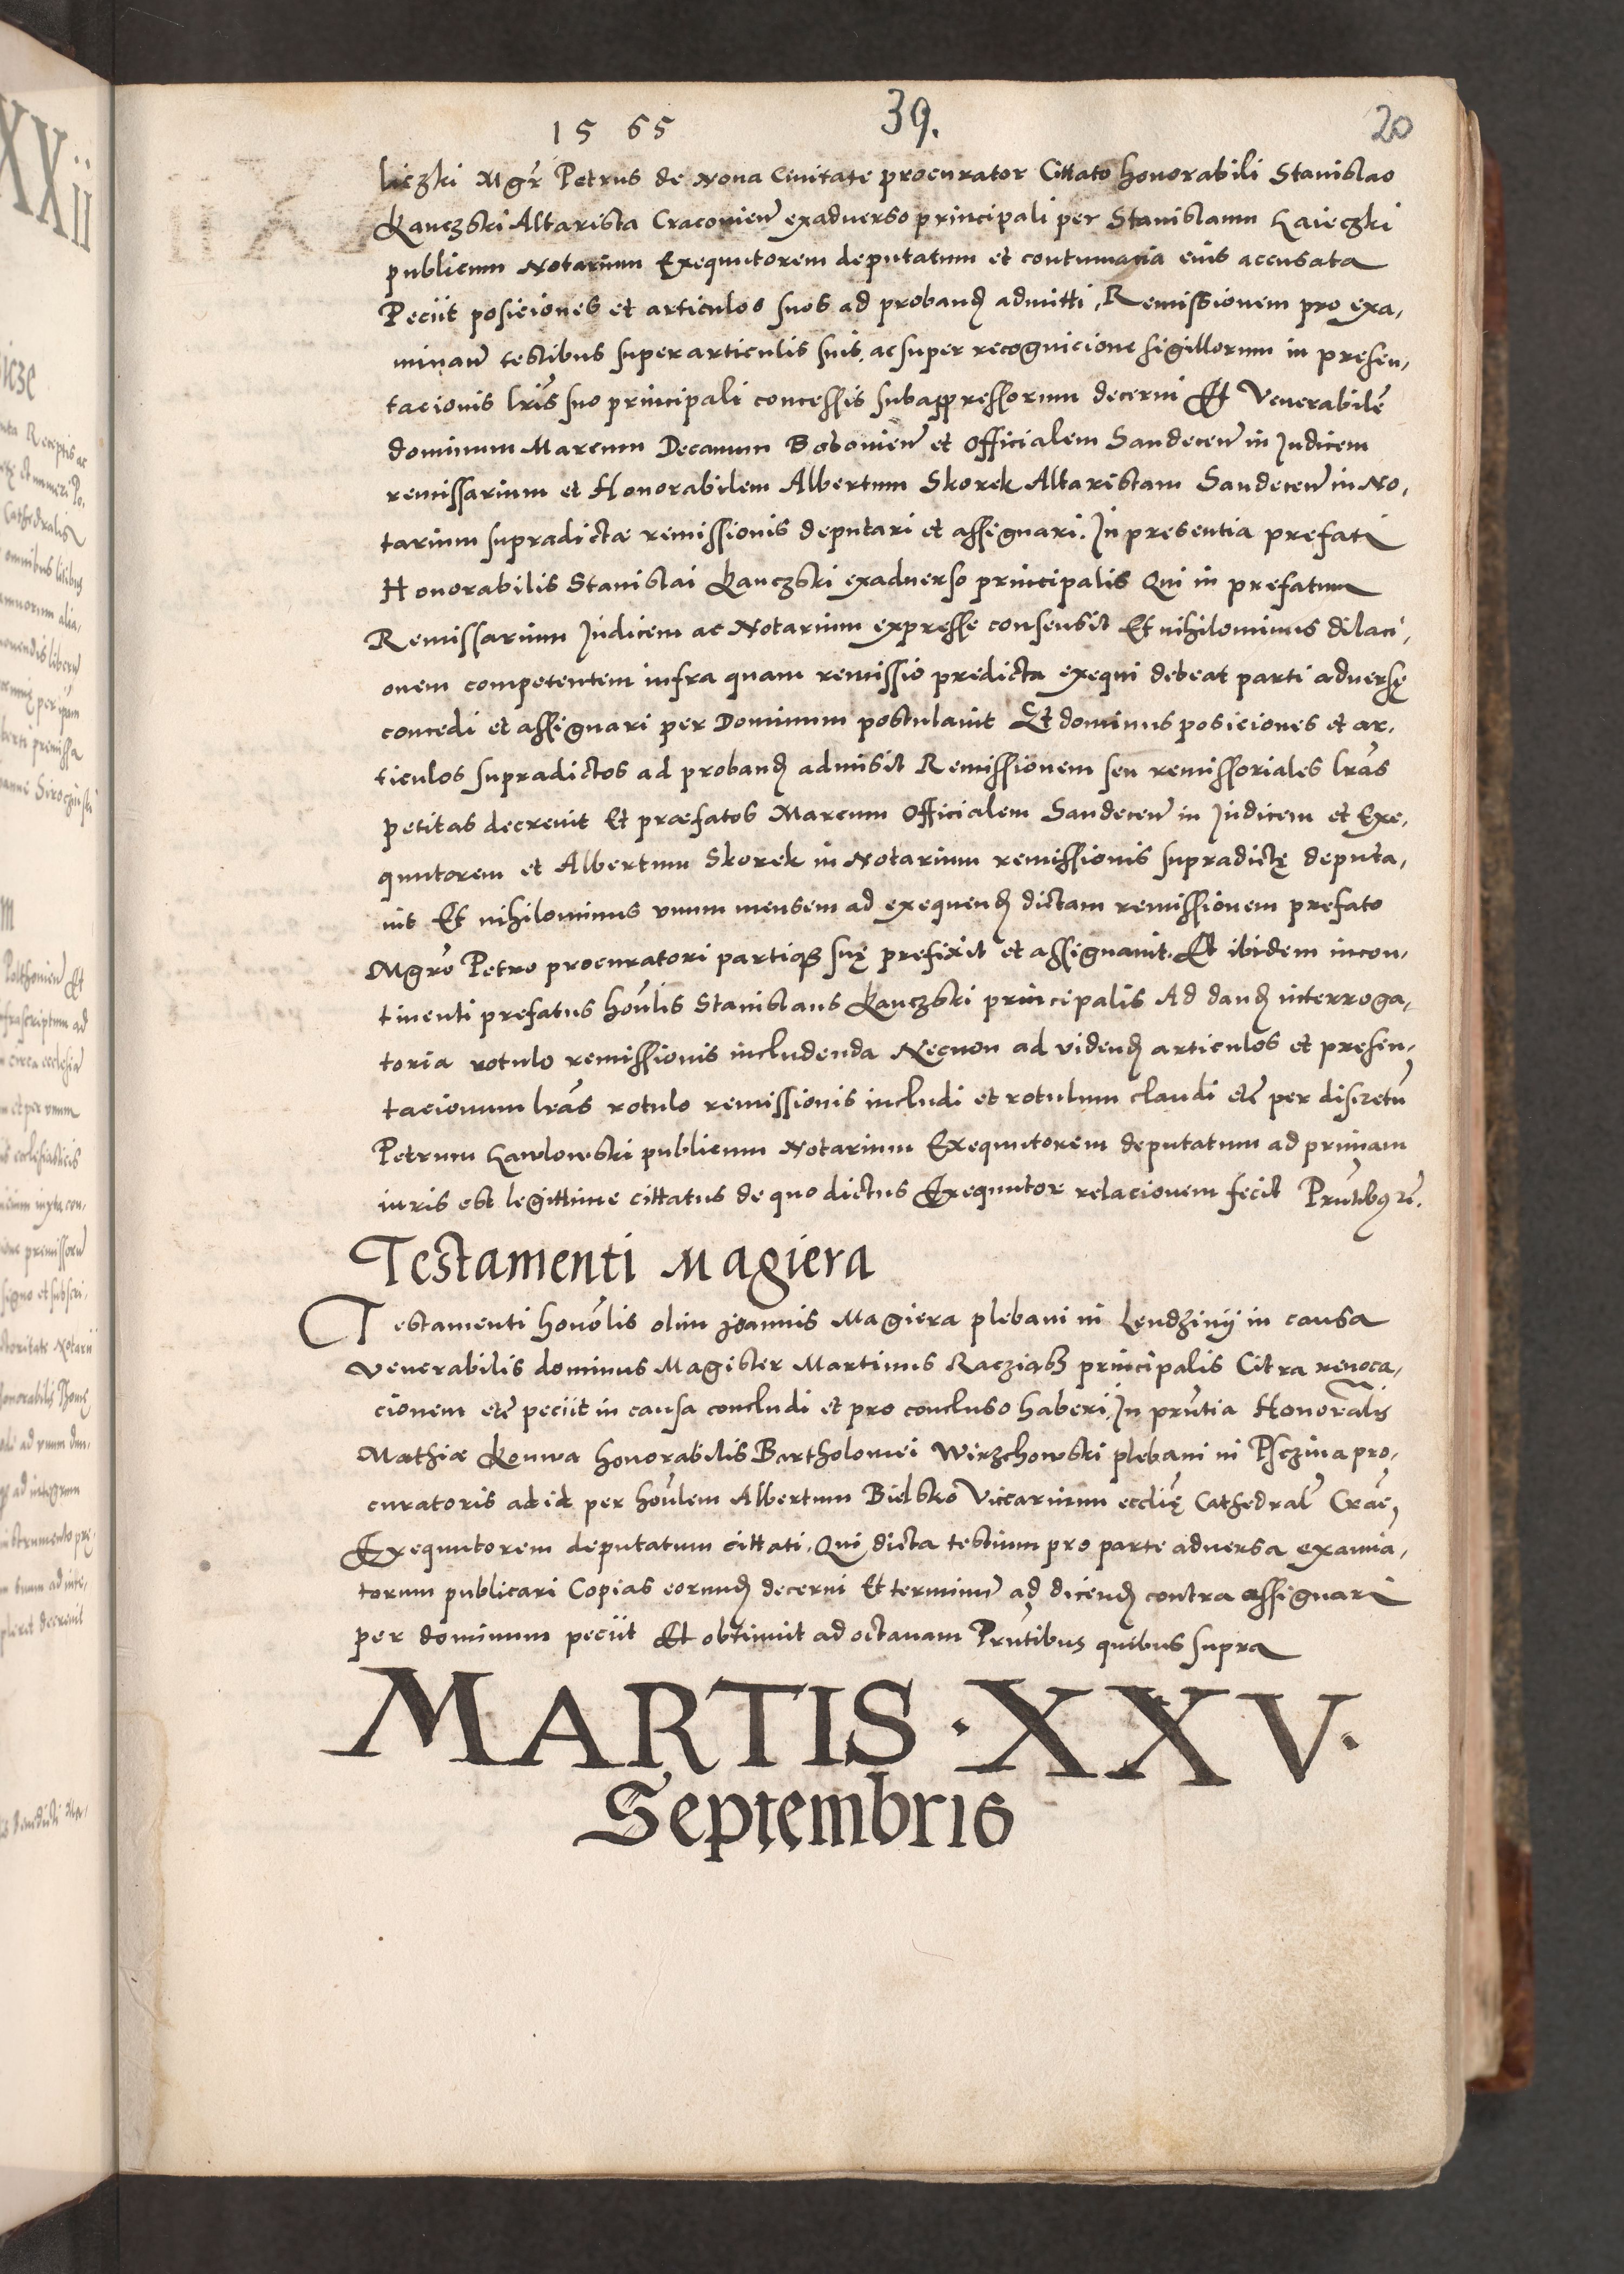 1565 39. 20
liczki Mgr̃ Petrus de Nova Civitate procurator Cittato honorabili Stanislao
Kanczski Altarista Cracovien̄ exadverso principali per Stanislaum Gaieczki
publicum Notarium Exequutorem deputatum et contumatia eius accusata
Peciit posiciones et articulos suos ad proband̄ admitti, Remissionem pro exa,
minan̄ testibus super articulis suis, ac super recognicione sigillorum in presen,
tacionis lr̃is suo principali concessis subappressorum decerni Et Venerabilē
dominum Marcum Decanum Bobovien̄ et Officialem Sandecen̄ in Judicem
remissarium et Honorabilem Albertum Skorek Altaristam Sandecen̄ in No,
tarium supradictæ remissionis deputari et assignari. In presentia prefati
Honorabilis Stanislai Kanczski exadverso principalis Qui in prefatum
Remissarium Judicem ac Notarium expresse consensit Et nihilominus dilaci,
onem competentem infra quam remissio predicta exequi debeat parti adversę
concedi et assignari per Dominum postulavit Et dominus posiciones et ar,
ticulos supradictos ad proband̄ admisit Remissionem seu remissoriales lr̃as
petitas decrevit Et præfatos Marcum Officialem Sandecen̄ in Judicem et Exe,
quutorem et Albertum Skorek in Notarium remissionis supradictę deputa,
vit Et nihilominus unum mensem ad exequend̄ dictam remissionem prefato
Mgrō Petro procuratori partiqȝ suę prefixit et assignavit. Et ibidem incon,
tinenti prefatus honl̄is Stanislaus Kanczski principalis Ad dand̄ interroga,
toria rotulo remissionis includenda Necnon ad vidend̄ articulos et presen,
tacionum lr̃as rotulo remissionis includi et rotulum claudi etc̄ per discretū
Petrum Gawlowski publicum Notarium Exequutorem deputatum ad primam
iuris est legittime cittatus de quo dictus Exequutor relacionem fecit Pñtibȝ
Testamenti Magiera
Testamenti honōlis olim Joannis Magiera plebani in Lendzinij in causa
Venerabilis dominus Magister Martinus Racziasz principalis Citra revoca,
cionem etc̄ peciit in causa concludi et pro concluso haberi, In pñtia Honorãlis
Mathiæ Konwa honorabilis Bartholomei Wirzchowski plebani in Psczina pro,
curatoris ad id per honl̄em Albertum Bielsko Viccarium eccl̄ię Cathedral̄ Crac̄,
Exequutorem deputatum cittati, Qui dicta testium pro parte adversa examina,
torum publicari Copias eorund̄ decerni Et terminū ad dicend̄ contra assignari
per dominum peciit Et obtinuit ad octavam Pñtibus quibus supra
MARTIS · XXV ·
Septembris